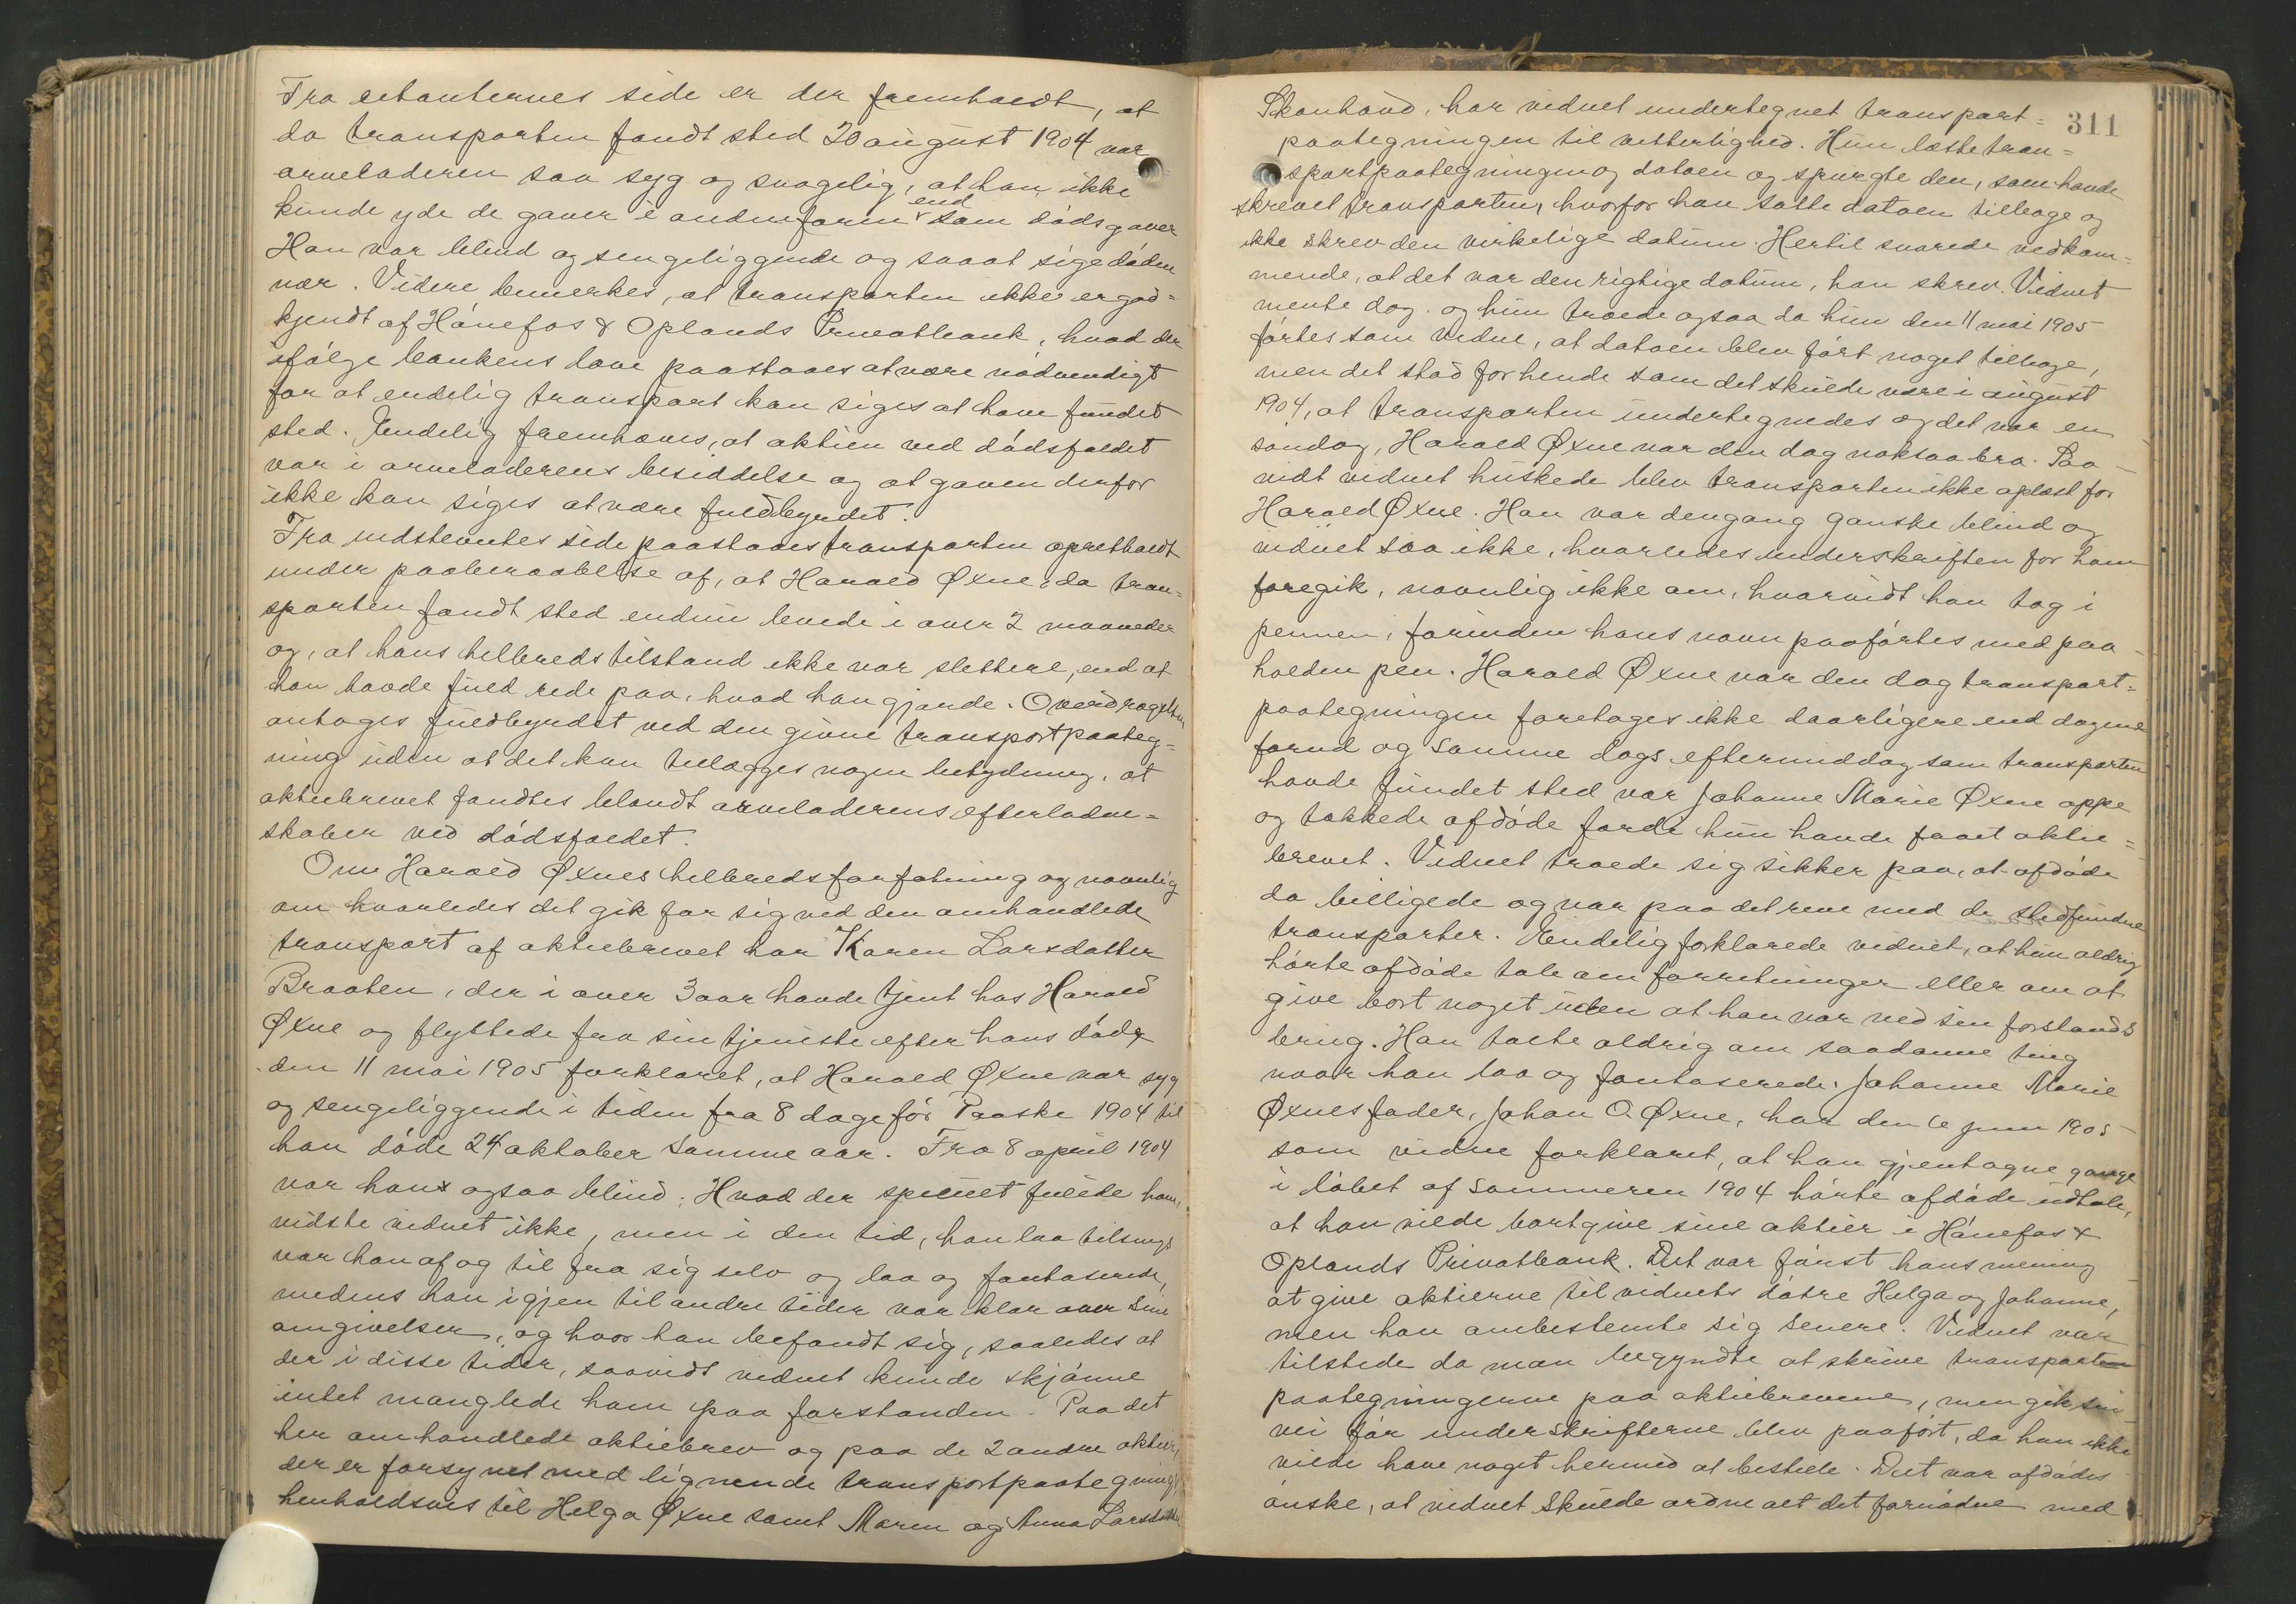 Fra citanternes side er der fremholdt, at
da transporten fandt sted 20 august 1904 var
arveladeren saa syg og svagelig, at han ikke
kunde yde de gaver i anden form end som dødsgaver
Han var blind og sengeliggende og saa at sige døden
nær. Videre bemerkes, at transporten ikke er god=
kjendt af Hønefos & Oplands Privatbank, hvad der
ifølge bankens love paastaaes at være nødvendigt
for at endelig transport kan siges at have fundet
sted. Endelig fremhæves, at aktien ved dødsfaldet
var i arveladerens besiddelse og at gaven derfor
ikke kan siges at være fuldbyrdet.
Fra indstevntes side paastaaes transporten opretholdt
under paaberaabelse af, at Harald Øxne, da tran=
sporten fandt sted endnu levede i over 2 maaneder
og, at hans helbredstilstand ikke var slettere, end at
han havde fuld rede paa, hvad han gjorde. Overdragelsen
antages fuldbyrdet ved den givne transportpaateg=
ning uden at det kan tillægges nogen betydning, at
aktiebrevet fandtes blandt arveladerens efterladen=
skaber ved dødsfaldet.
Om Harald Øxnes helbredsforfatning og navnlig
om hvorledes det gik for sig ved den omhandlede
transport af aktiebrevet har Karen Larsdatter
Braaten, der i over 3 aar havde tjent hos Harald
Øxne og flyttede fra sin tjeneste efter hans død
den 11 mai 1905 forklaret, at Harald Øxne var syg
og sengeliggende i tiden fra 8 dage før Paaske 1904 til
han døde 24 oktober samme aar. Fra 8 april 1904
var han ogsaa blind. Hvad der specielt feilede ham,
vidste vidnet ikke, men i den tid, han laa tilsengs
var han af og til fra sig selv og laa og fantaserede,
medens han igjen til andre tider var klar over sine
omgivelser, og hvor han befandt sig, saaledes at
der i disse tider, saavidt vidnet kunde skjønne
intet manglede ham paa forstanden. Paa det
her omhandlede aktiebrev og paa de 2 andre aktier,
der er forsynet med lignende transportpaategning,
henholdsvis til Helga Øxne samt Maren og Anna Larsdatter
311
Skonhovd, har vidnet undertegnet transport=
paategningen til vitterlighed. Hun læste tran=
sportpaategningen og datoen og spurgte den, som havde
skrevet transporten, hvorfor han satte datoen tilbage og
ikke skrev den virkelige datum. Hertil svarede vedkom=
mende, at det var den rigtige datum, han skrev. Vidnet
mente dog og hun troede ogsaa da hun den 11 mai 1905
førtes som vidne, at datoen blev ført noget tilbage,
men det stod for hende som det skulde være i august
1904, at transporten undertegnedes og det var en
søndag, Harald Øxne var den dag noksaa bra. Saa-
vidt vidnet huskede blev transporten ikke oplæst for
Harald Øxne. Han var dengang ganske blind og
vidnet saa ikke, hvorledes underskriften for ham
foregik, navnlig ikke om, hvorvidt han tog i
pennen, forinden hans navn paaførtes med paa-
holden pen. Harald Øxne var den dag transport=
paategningen foretoges ikke daarligere end dagene
forud og samme dags eftermiddag som transporten
havde fundet sted var Johanne Marie Øxne oppe
og takkede afdøde fordi hun havde faaet aktie=
brevet. Vidnet troede sig sikker paa, at afdøde
da billigede og var paa det rene med de stedfundne
transporter. Endelig forklarede vidnet, at hun aldrig
hørte afdøde tale om forretninger eller om at
give bort noget uden at han var ved sin forstands
brug. Han talte aldrig om saadanne ting
naar han laa og fantaserede. Johanne Marie
Øxnes fader, Johan O. Øxne, har den 6 juni 1905
som vidne forklaret, at han gjentagne gange
i løbet af sommeren 1904 hørte afdøde udtale,
at han vilde bortgive sine aktier i Hønefos &
Oplands Privatbank. Det var først hans mening
at give aktierne til vidnets døtre Helga og Johanne,
men han ombestemte sig senere. Vidnet var
tilstede da man begyndte at skrive transport
paategningerne paa aktiebrevene, men gik sin
vei før underskrifterne blev paaført, da han ikke
vilde have noget hermed at bestille. Det var afdødes
ønske, at vidnet skulde ordne alt det fornødne med